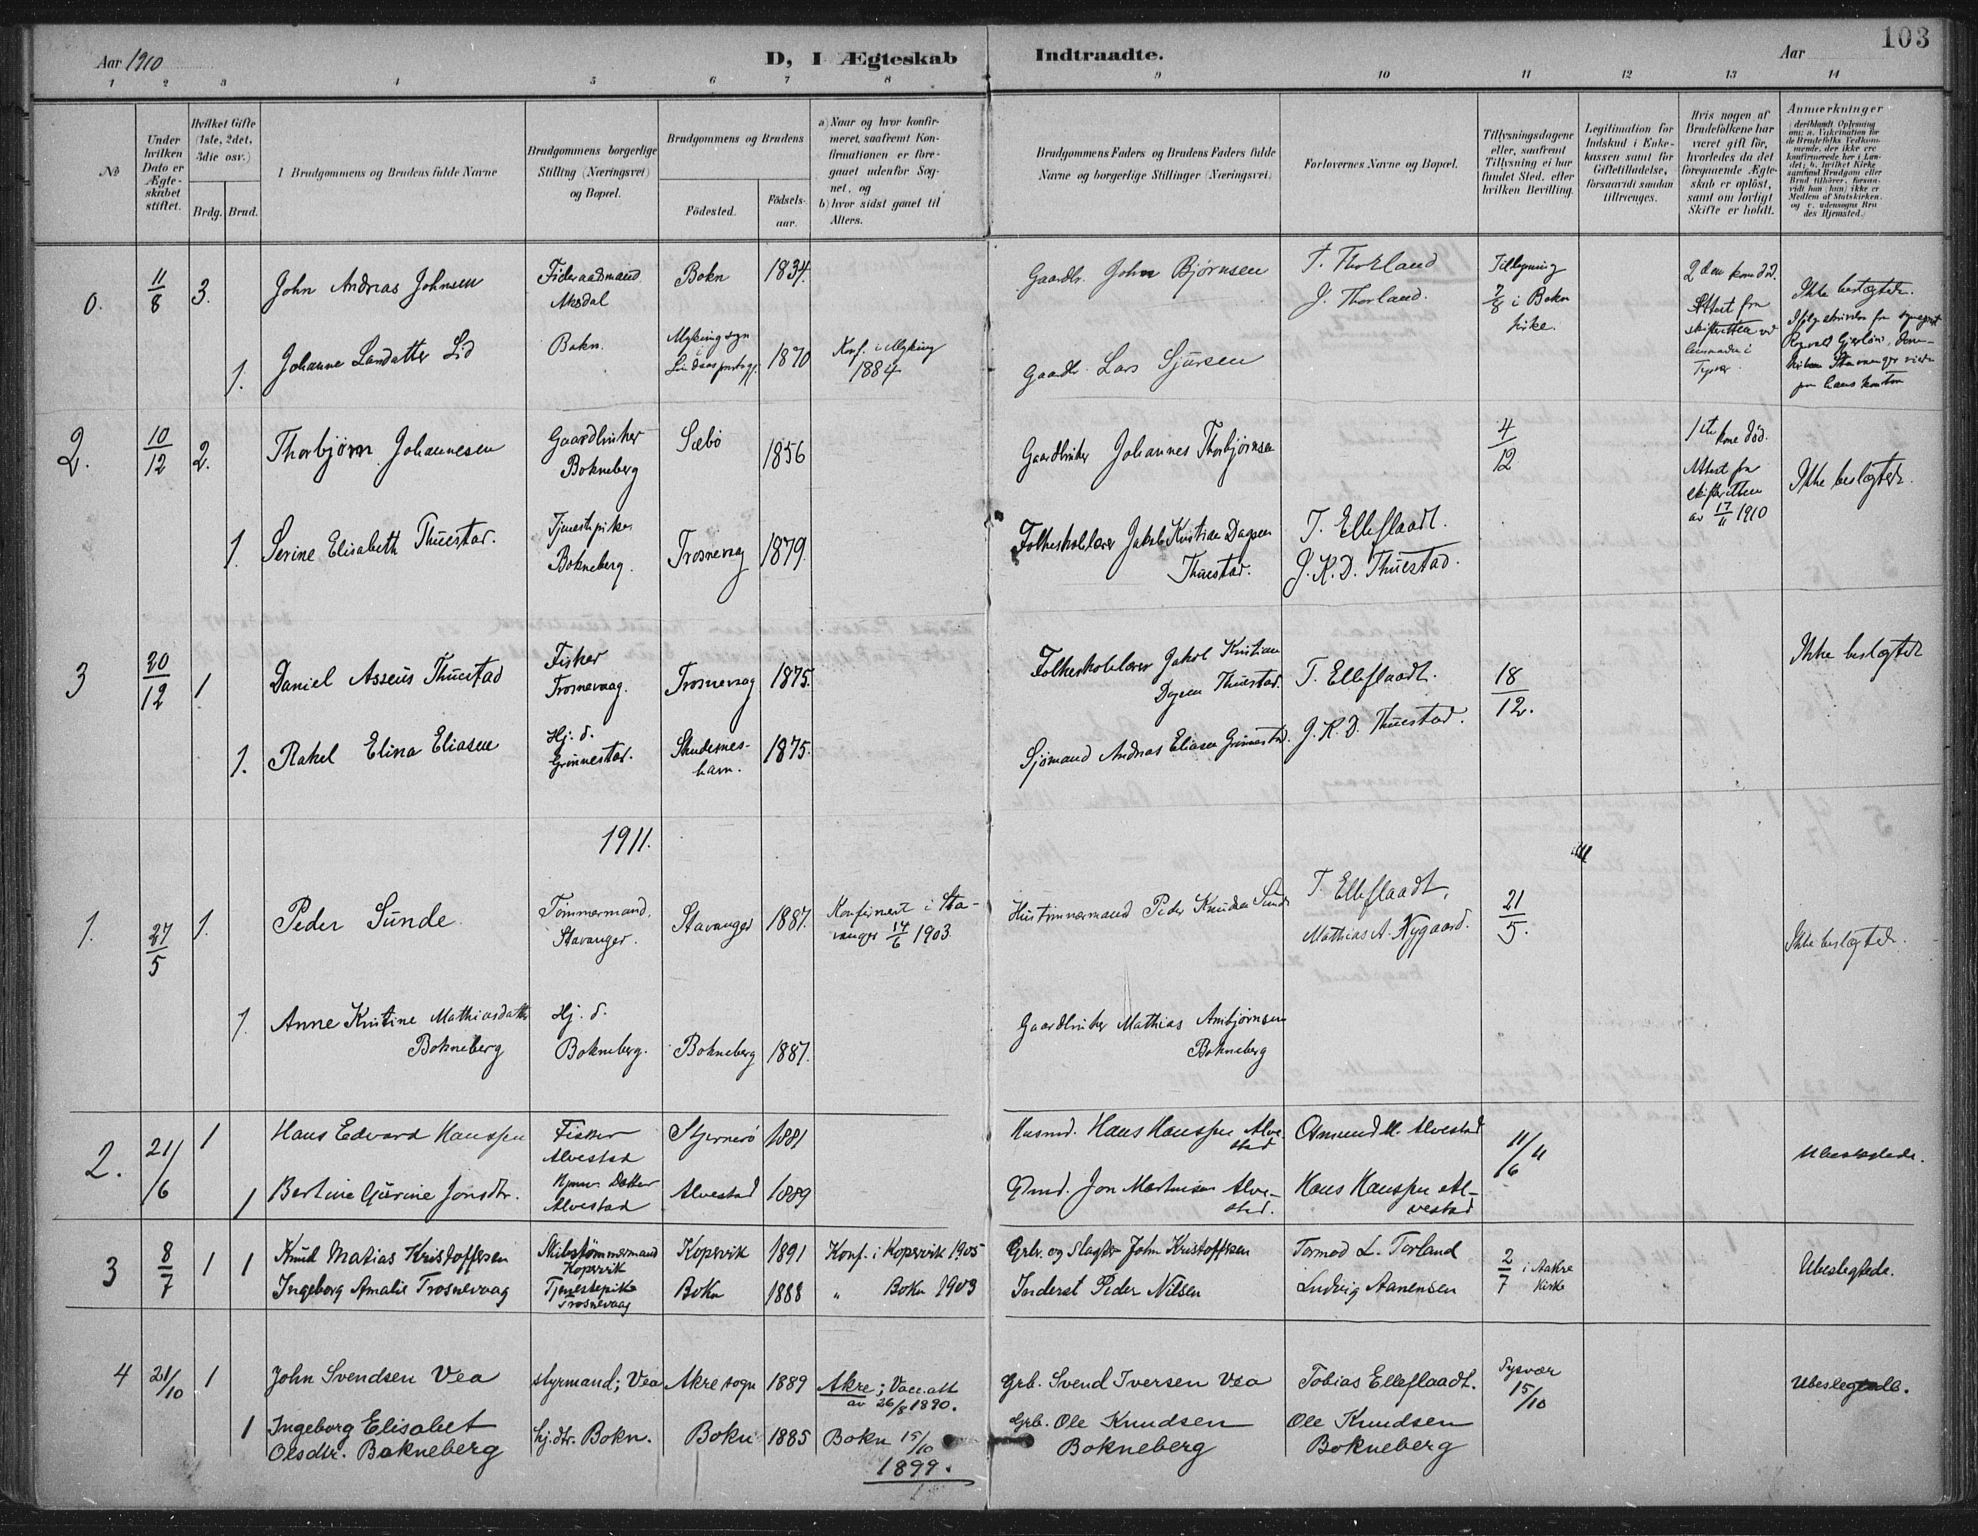 103
Aar 1910
D, I Ægteskab Indtraadte.
Aar
1 2 3 4 5 6 7 8 9 10 11 12 13 14
No
Under hvilken Dato er Ægteskabet stiftet.
Hvilket Gifte (1ste, 2det, 3die osv.)
Brdg. Brud.
I Brudgommens og Brudens fulde Navne
Brudgommens borgerlige Stilling (Næringsvei) og Bopæl.
Brudgommens og Brudens
Födested.
Födselsaar.
a) Naar og hvor konfirmeret, saafremt Konfirmationen er foregaaet udenfor Sognet, og
b) hvor sidst gaaet til Alters.
Brudgommens Faders og Brudens Faders fulde Navne og borgerlige Stillinger (Næringsvei)
Forlovernes Navne og Bopæl.
Tillysningsdagene eller, saafremt Tillysning ei har fundet Sted, efter hvilken Bevilling.
Legitimation for Indskud i Enkekassen samt for Giftetilladelse, forsaavidt saadan tiltrænges.
Hvis nogen af Brudefolkene har været gift för, hvorledes da det foregaaende Ægteskab er oplöst, samt om lovligt Skifte er holdt.
Anmærkninger
0. 11/8 3. John Andreas Johnsen
Aksdal
Bokn 1834.
Gaardbr. John Bjørnsen
T. Thorland
J. Thorland.
Tillysning
7/8 i Bokn
kirke.
2den kone död.
Attest fra
skifteretten ved
lensmanden i
Tysvær.
Ikke beslægtede.
1. Johanne Larsdatter Lid
Bokn.
1870
Konf. i Myking
1884
Gaardbr. Lars Sjursen
2. 10/12 2. Thorbjørn Johannesen
Gaardbruker
Bokneberg
Sæbö
1856
Gaardbruker Johannes Thorbjørnsen
4/12
1ste kone död.
Attest fra
skifteretten
av 17/11 1910
Ikke beslægtede.
1. Serine Elisabeth Thuestad.
Tjenestepike
Bokneberg.
Trosnevag 1879.
Folkeskolelærer Jakob Kristian Dagsen
Thuestad.
T. Elleflaadt.
J. K. D. Thuestad.
3 20/12 1 Daniel Asseus Thuestad
Fisker
Trosnevaag.
Trosnevag 1875.
Folkeskolelærer Jakob Kristian
Dagsen Thuestad.
T. Elleflaadt.
18/12.
Ikke beslægtede
1. Rakel Elina Eliasen
Hj. d.
Grönnestad.
Skudesnes-
havn.
1875.
Sjömand Andreas Eliasen Grönnestad.
J. K. D. Thuestad.
1911.
1. 27/5 1. Peder Sunde.
Tömmermand,
Stavanger.
Stavanger 1887.
Konfirmert i Sta-
vanger 14/6 1903.
Hustömmermand Peder Knudsen Sunde
T. Elleflaadt,
Mathias A. Nygaard.
21/5.
Ikke beslægtede.
1. Anne Kristine Mathiasdatter
Bokneberg
Hj. d.
Bokneberg.
Bokneberg 1887.
Gaardbruker Mathias Ambjørnsen
Bokneberg
2. 21/6 1 Hans Edvard Hanssen
Fisker
Alvestad
Stjernerö 1881
Husmd. Hans Hanssen Alve-
stad
Osmund M. Alvestad
11/6 11
Ubeslegtede.
1 Bertine Gurine Jonsdtr.
Hjmm. Datter
Alvestad
Alvestad 1889
Gdmd. Jon Martinsen Alve-
stad.
Hans Hanssen Al-
vestad
3 8/7 1 1 Knud Matias Kristoffersen
Skibstömmermand
Kopervik
Kopervik 1891 Konf. i Kopervik 1905
Grbr. og Slagter John Kristoffersen
Tormod L. Torland
2/7 i Aakre
Kirke
Ubeslegtede.
Ingeborg Amalie Trosnevaag
Tjenestepike
Trosnevaag
Bokn 1888 " Bokn 1903
Inderst Peder Nilsen
Ludvig Aanensen
4 21/10 1 John Svendsen Vea
styrmand; Vea Akre sogn 1889 Akre; Vacc.att
av 26/8 1890.
Grb. Svend Iversen Vea
Tobias Elleflaadt.
Tysvær
15/10
Ubeslegtede.
1 Ingeborg Elisabet
Olsdtr. Bokneberg
hj.dtr. Bokn. Bokn 1885 Bokn 15/10
1899.
Grb. Ole Knudsen
Bokneberg
Ole Knudsen
Bokneberg